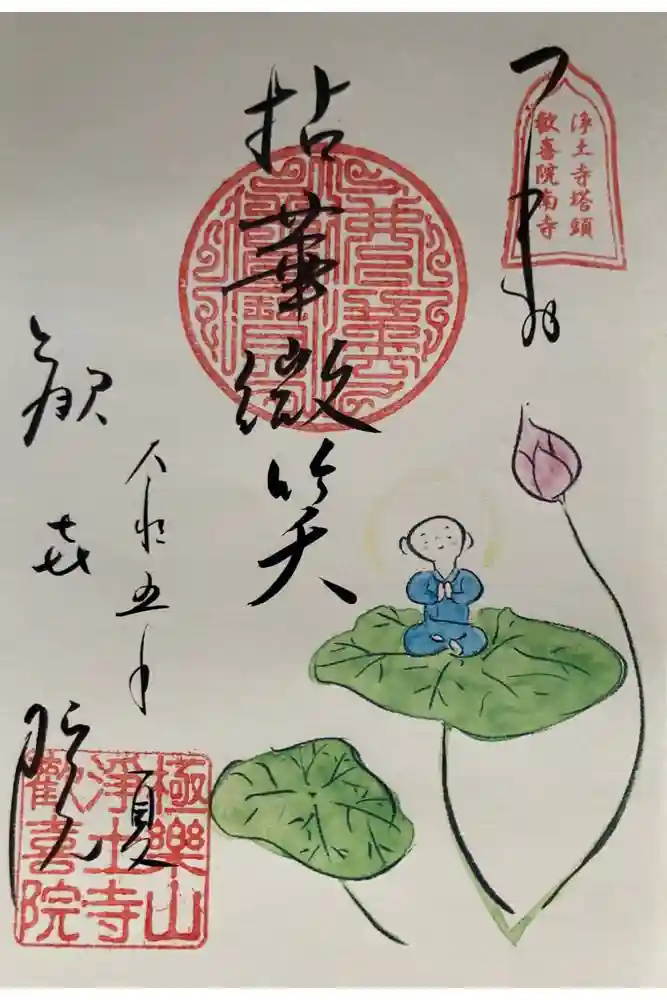 浄土寺塔頭
歓喜院南寺
拈華微笑
令和五年 夏
歓喜院
極樂山
淨土寺
歡喜院